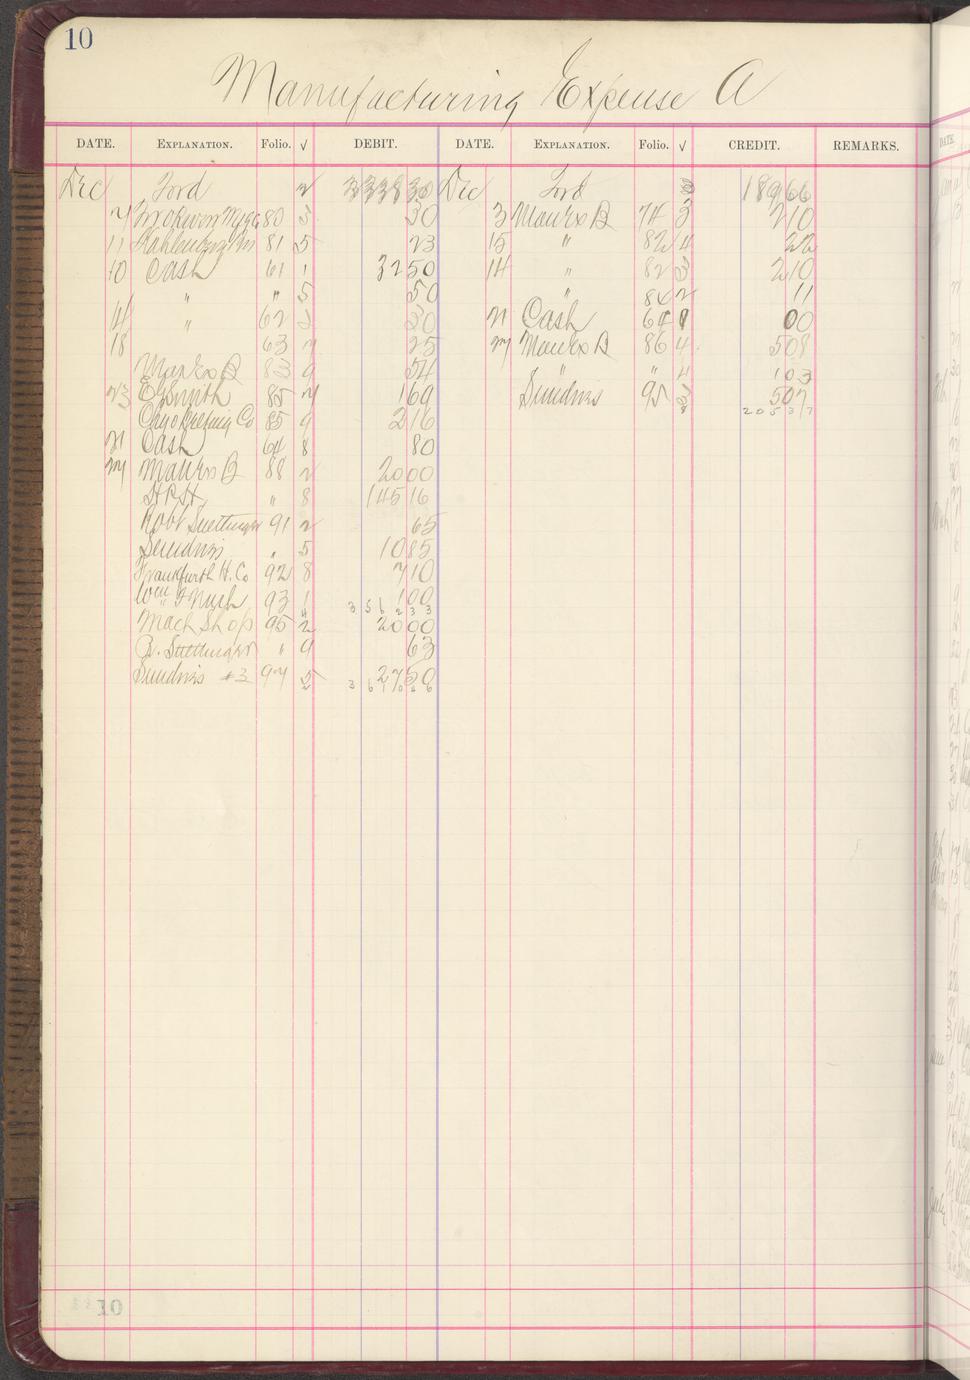 10
Manufacturing Expense A
DATE. EXPLANATION. Folio. √ DEBIT. DATE. EXPLANATION. Folio. √ CREDIT. REMARKS.
Dec Ford 2 333830 Dec Ford 18966
80 5 30 3 Man Ex B 74 3 210
11 81 5 23 15 " 82 4 22
10 Cash 61 1 3250 14 " 82 3 210
" " 5 50 " 84 2 11
14 " 62 30 21 Cash 64 00
18 63 25 Man Ex B 86 4 508
Man Ex B 83 9 54 " 4 103
23 E J Smith 85 169 Sundries 95 507
Co 85 9 216 20537
21 Cash 64 8 80
Man Ex B 88 2 2000
H.R.H. " 8 14516
Robt Suettinger 91 2 65
Sundries " 5 1085
Frankfurth H. Co 92 8 710
Wm F Nush 93 1 100
356233
Mach Shop 95 2 2000
R. Suettinger " 9 63
Sundries #3 97 5 2750
361026
10